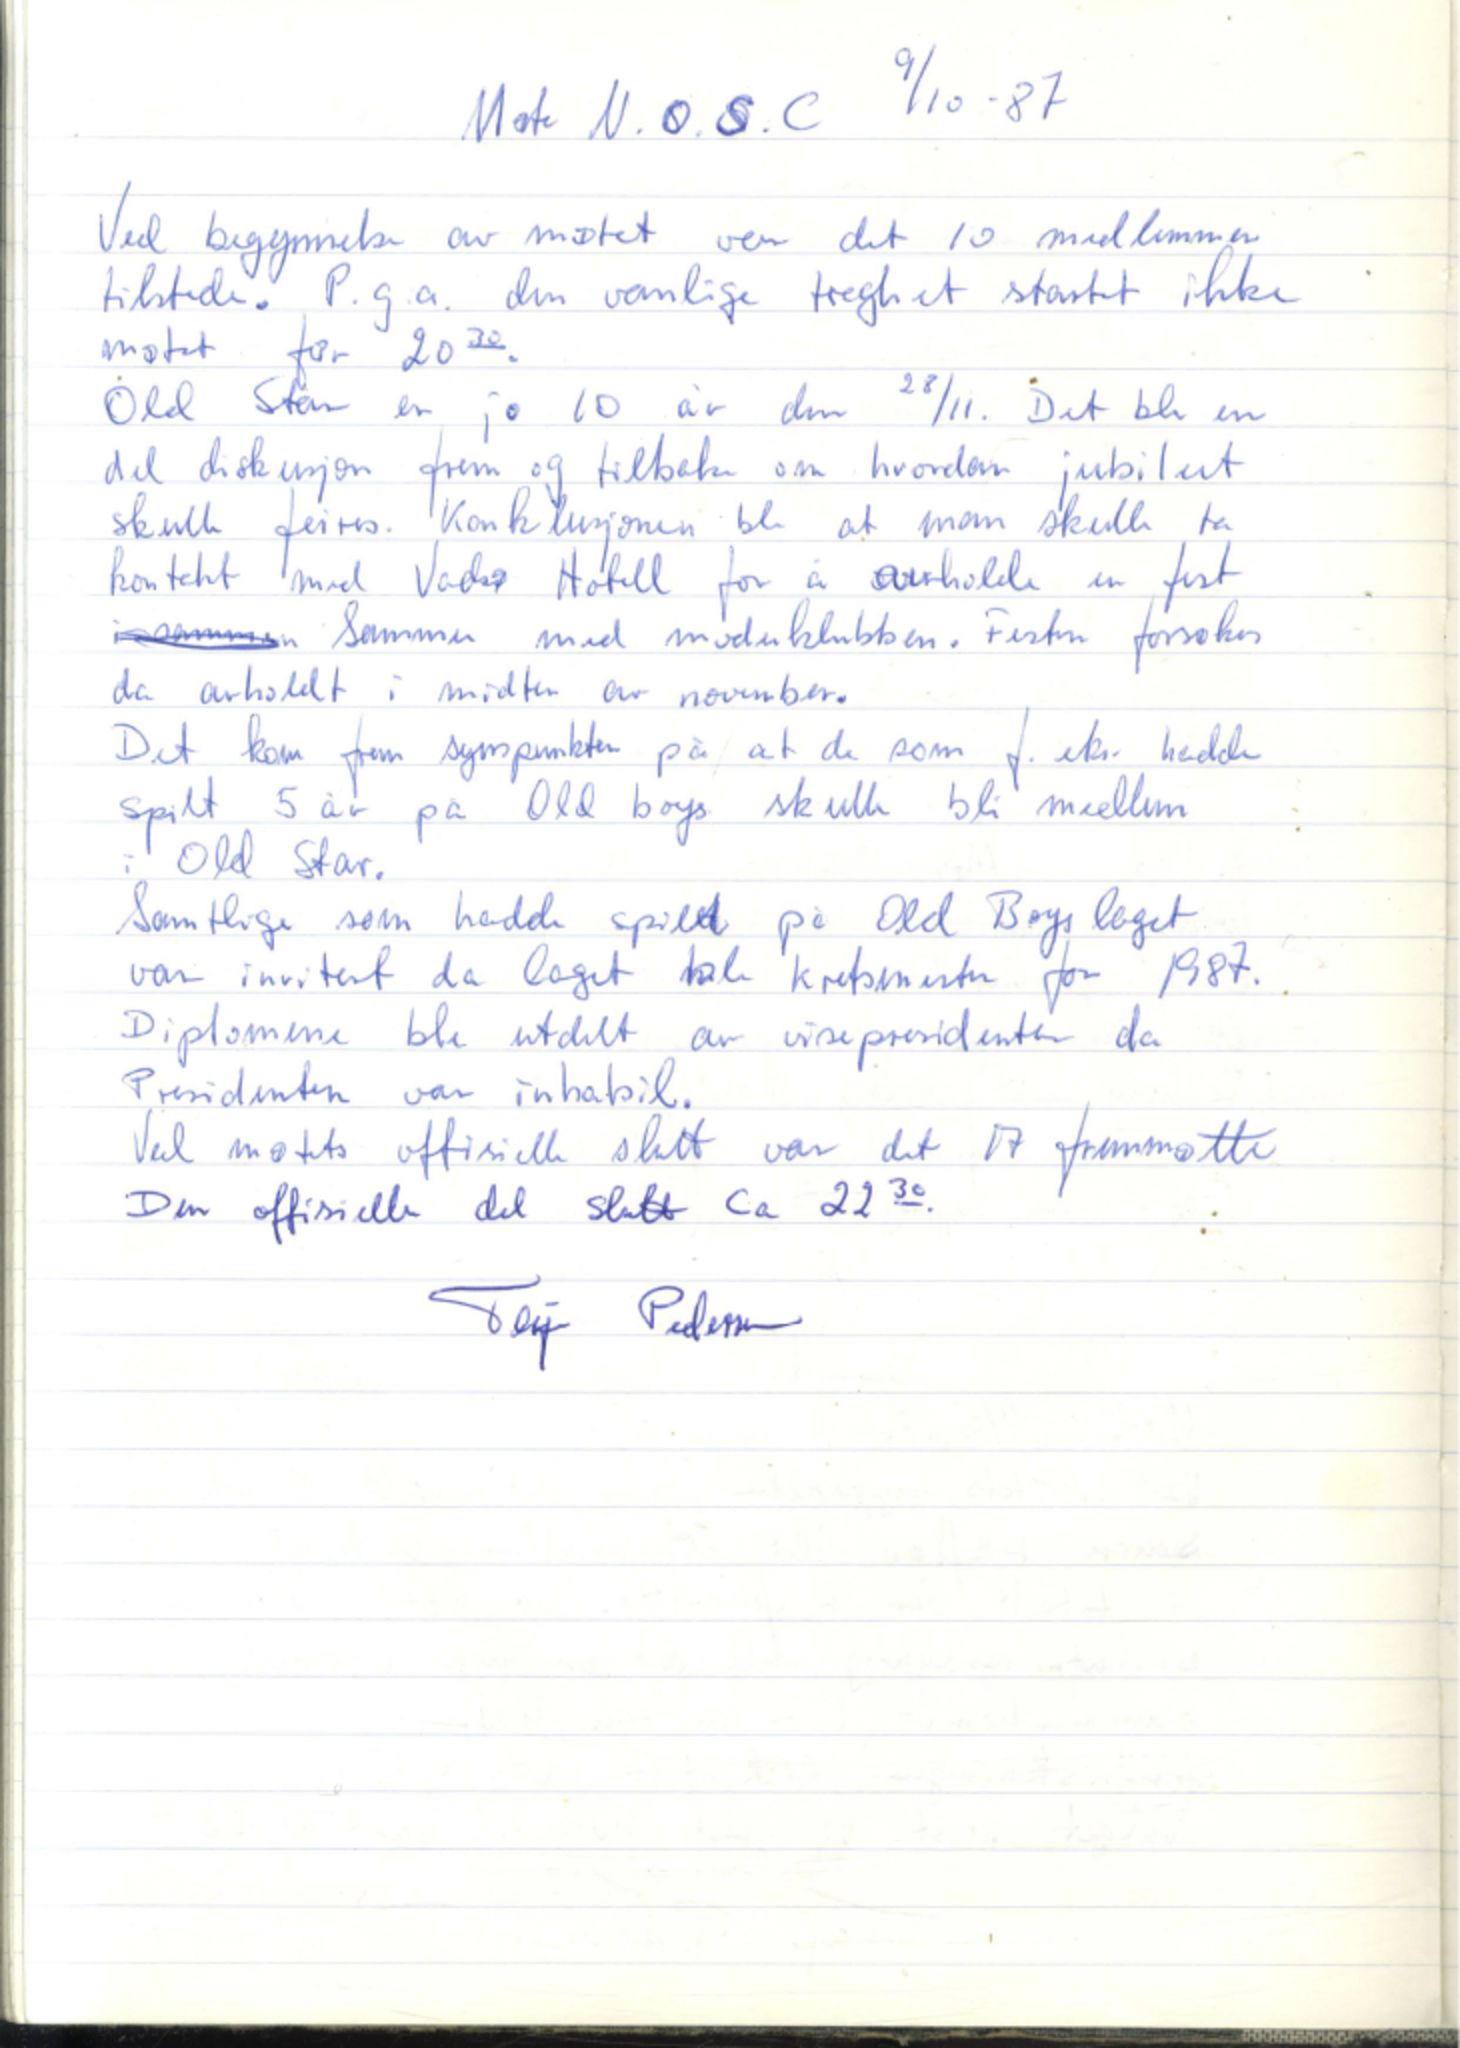 Møte N.O.S.C 9/10-87
Ved begynnelse av møtet var det 10 medlemmer
tilstede. P.g.a. den vanlige treghet startet ikke
møtet før 20 30.
Old Star er jo 10 år den 28/11. Det ble en
del diskusjon frem og tilbake om hvordan jubileet
skulle feires. Konklusjonen ble at man skulle ta
kontakt med Hotell for å avholde en fest
sammen med moderklubben. Festen forsøkes
da avholdt i midten av november.
Det kom frem synspunkter på at de som f. eks. hadde
spilt 5 år på Old boys skulle bli medlem
i Old Star.
Samtlige som hadde spilt på Old Boys laget
var invitert da laget ble kretsmester for 1987.
Diplomene ble utdelt av visepresidenten da
Presidenten var inhabil.
Ved møtets offisielle slutt var det 17 fremmøtte
Den offisielle del slutt ca 22 30.
Terje Pedersen